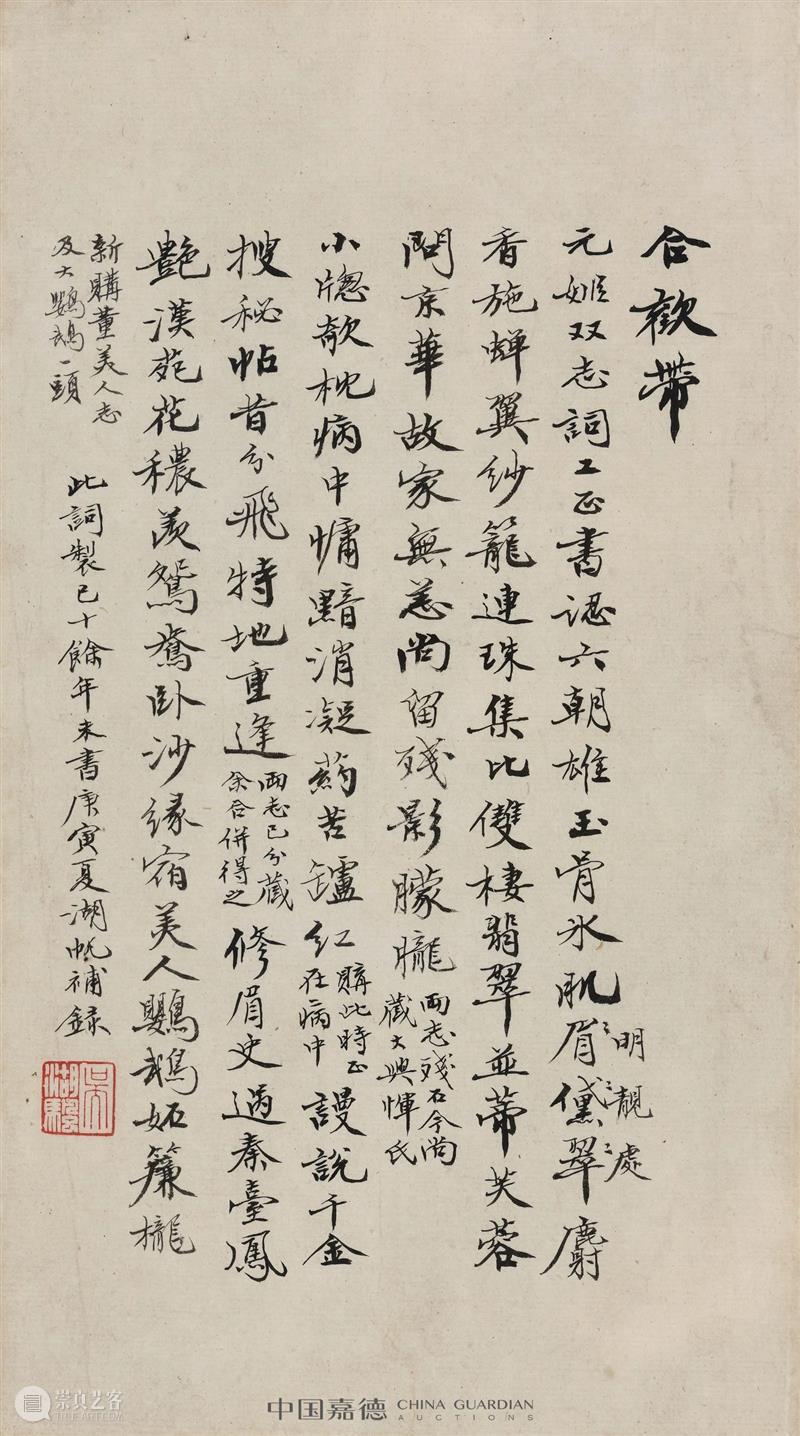 合歡帶
元姬双志詞工正書認六朝雄玉骨氷肌眉黛翠麝
明靚處
香施蟬翼紗籠連珠集比雙棲翡翠並蒂芙蓉
問京華故家無恙尚留殘影朦朧
兩志殘石今尚
藏大興惲氏
小窻欹枕病中慵黯消凝葯苦鑪紅
購此時正
在病中
謾說千金
搜秘帖昔分飛特地重逢
兩志已分藏
余合併得之
修眉史過秦臺鳳
艷漢苑花穠羨鴛鴦卧沙緣宿美人鸚鵡妬簾櫳
新購董美人志
及大鸚鵡一頭
此詞製已十餘年未書庚寅夏湖帆補錄
崇真艺客
中国嘉德 CHINA GUARDIAN
AUCTIONS